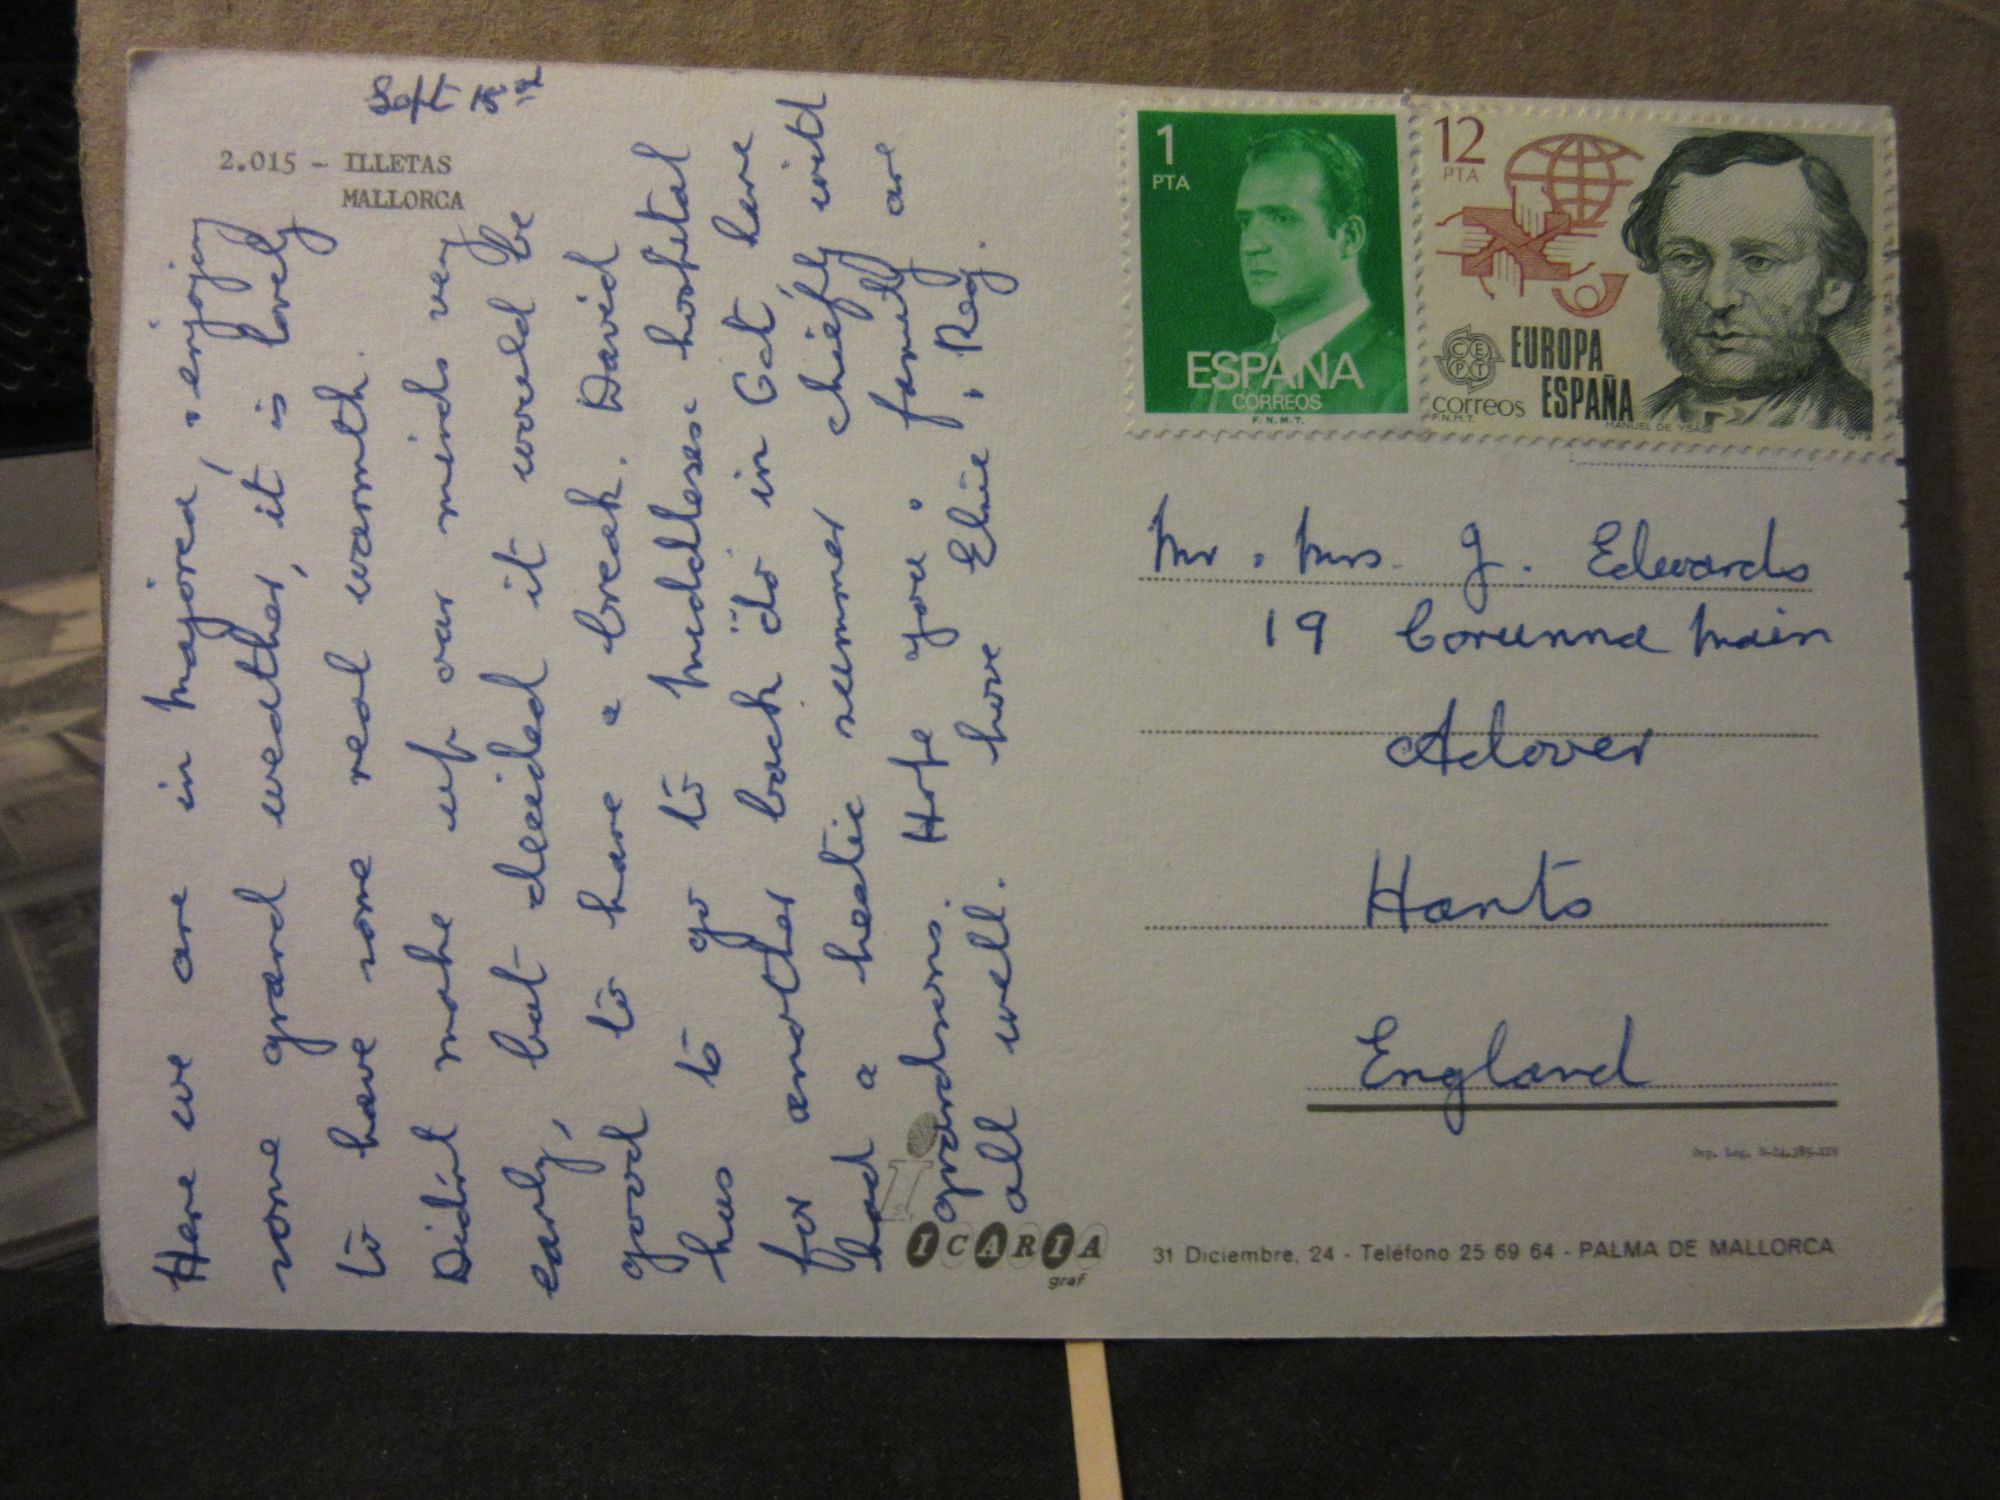 Sept
2.015 - ILLETAS
MALLORCA
Here we are in Majorca, enjoying
some grand weather, it is lovely
to have some real warmth.
Didn't make up our minds very
early, but decided it would be
good to have a break. David
has to go to Middlesex hospital
for another back "do" in Oct have
had a hectic summer chiefly with
grandsons. Hope you & family are
all well. Love Elsie & Reg.
1
PTA
ESPAÑA
CORREOS
F.N.M.T.
12
PTA
CEPT
EUROPA
ESPAÑA
correos
F.N.M.T.
MANUEL DE YSASI
1979
Mr & Mrs. J. Edwards
19 Corunna Main
Adover
Hants
England
Dep. Leg.
ICARIA
graf
31 Diciembre, 24 - Teléfono 25 69 64 - PALMA DE MALLORCA